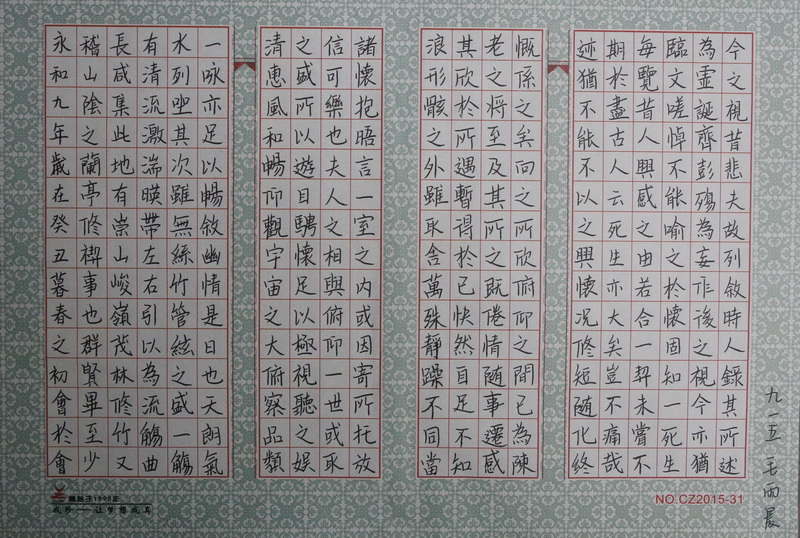 永和九年歲在癸丑暮春之初會於會
稽山陰之蘭亭修禊事也群賢畢至少
長咸集此地有崇山峻嶺茂林修竹又
有清流激湍暎帶左右引以為流觴曲
水列坐其次雖無絲竹管絃之盛一觴
一咏亦足以暢敘幽情是日也天朗氣
清惠風和暢仰觀宇宙之大俯察品類
之盛所以遊目騁懷足以極視聽之娛
信可樂也夫人之相與俯仰一世或取
諸懷抱晤言一室之內或因寄所托放
浪形骸之外雖取舍萬殊靜躁不同當
其欣於所遇暫得於己快然自足不知
老之將至及其所之既倦情随事遷感
慨係之矣向之所欣俯仰之間已為陳
迹猶不能不以之興懷况修短随化終
期於盡古人云死生亦大矣豈不痛哉
每覽昔人興感之由若合一契未嘗不
臨文嗟悼不能喻之於懷固知一死生
為虛誕齊彭殤為妄作後之視今亦猶
今之視昔悲夫故列敘時人錄其所述
九一五 王雨晨
让梦想成真
NO.CZ2015-31